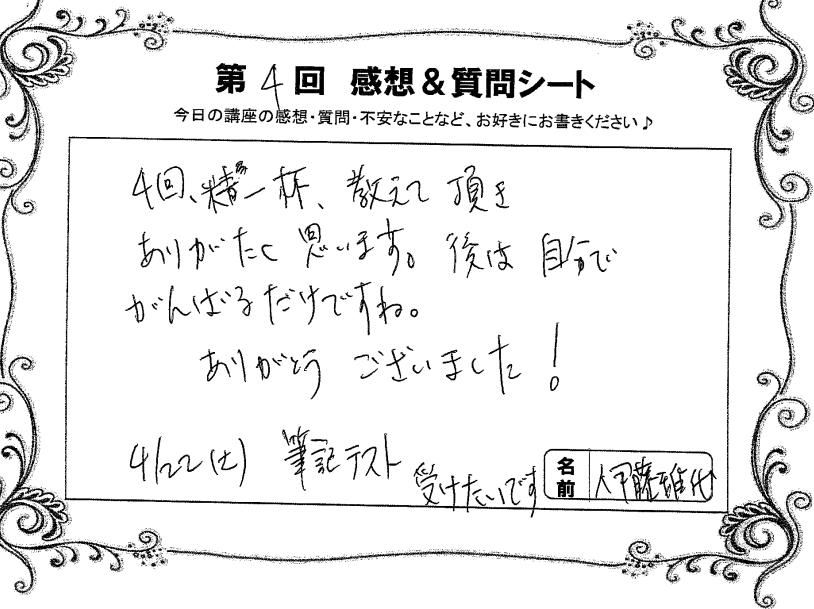 第4回 感想&質問シート
今日の講座の感想・質問・不安なことなど、お好きにお書きください♪
4回、精一杯、教えて頂き
ありがたく思います。後は自分で
がんばるだけですね。
ありがとうございました!
4/22(土) 筆記テスト
受けたいです
名前 伊藤雅代